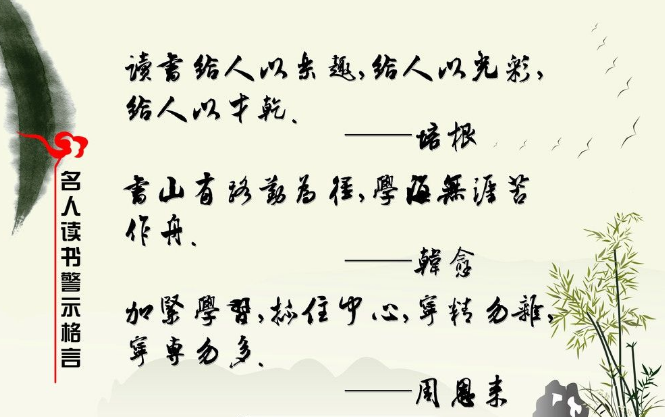 名人读书警示格言
讀書给人以乐趣,给人以光彩,
给人以才乾.
——培根
書山有路勤為徑,學海無涯苦
作舟.
——韓愈
加緊學習,抓住中心,寧精勿雜,
寧專勿多.
——周恩来